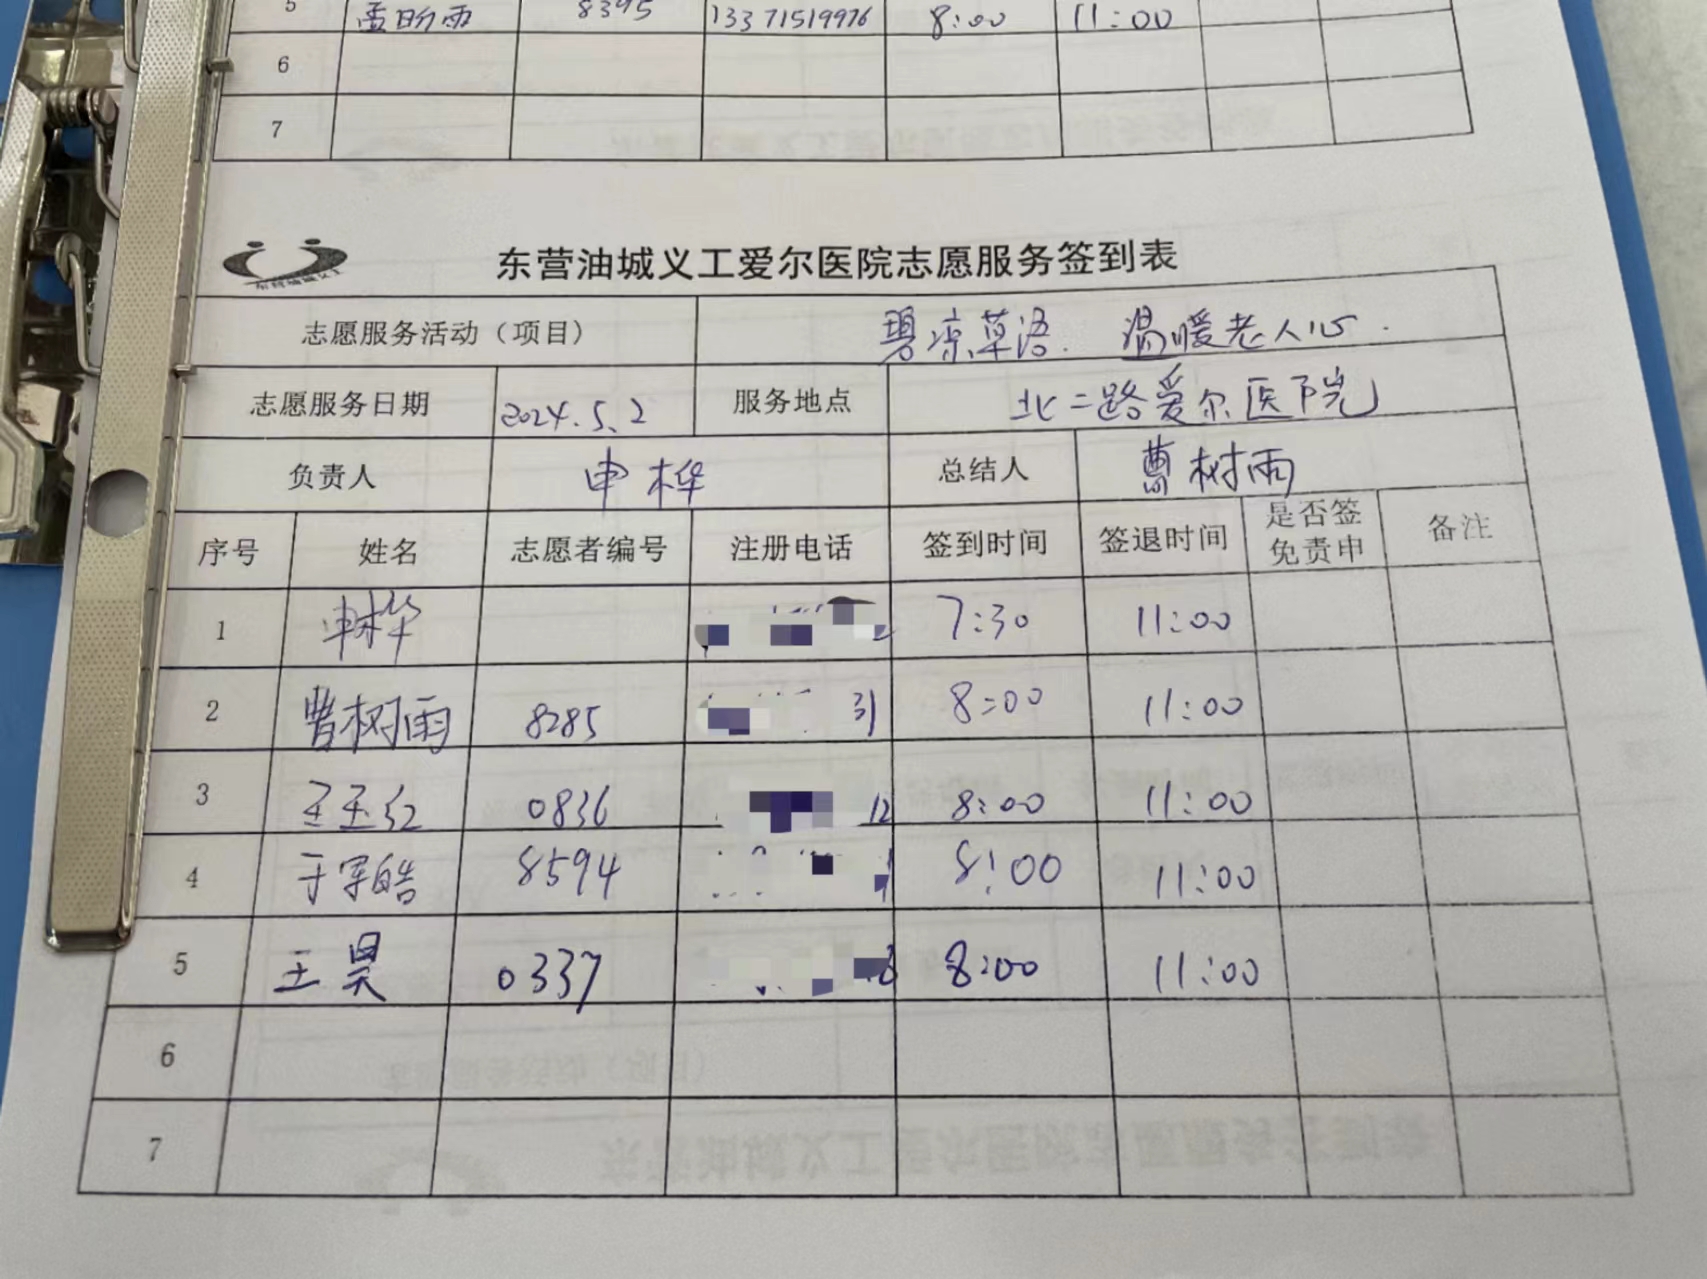 5 孟昐雨 8395 13371519976 8:00 11:00
6
7
东营油城义工
东营油城义工爱尔医院志愿服务签到表
志愿服务活动（项目） 碧凉草语. 温暖老人心.
志愿服务日期 2024.5.2 服务地点 北二路爱尔医院
负责人 申桦 总结人 曹树雨
序号 姓名 志愿者编号 注册电话 签到时间 签退时间 是否签免责申 备注
1 申桦 7:30 11:00
2 曹树雨 8285 31 8:00 11:00
3 王玉红 0836 12 8:00 11:00
4 于宇皓 8594 8:00 11:00
5 王昊 0337 8:00 11:00
6
7